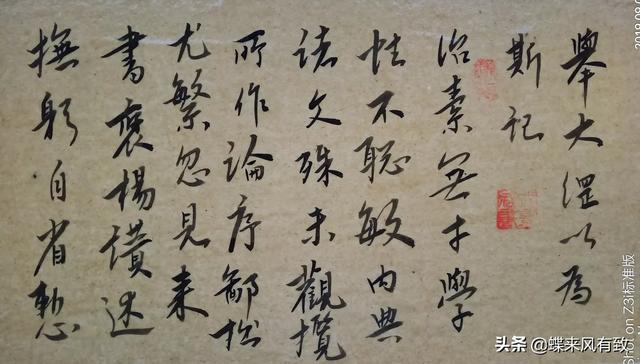 舉大綱以為
斯記
治素無才學
性不聪敏内典
諸文殊未觀攬
所作論序鄙拙
尤繁忽見来
書褒楊讃述
撫躬自省慙
on Z3i标准版
头条 @蝶来风有致